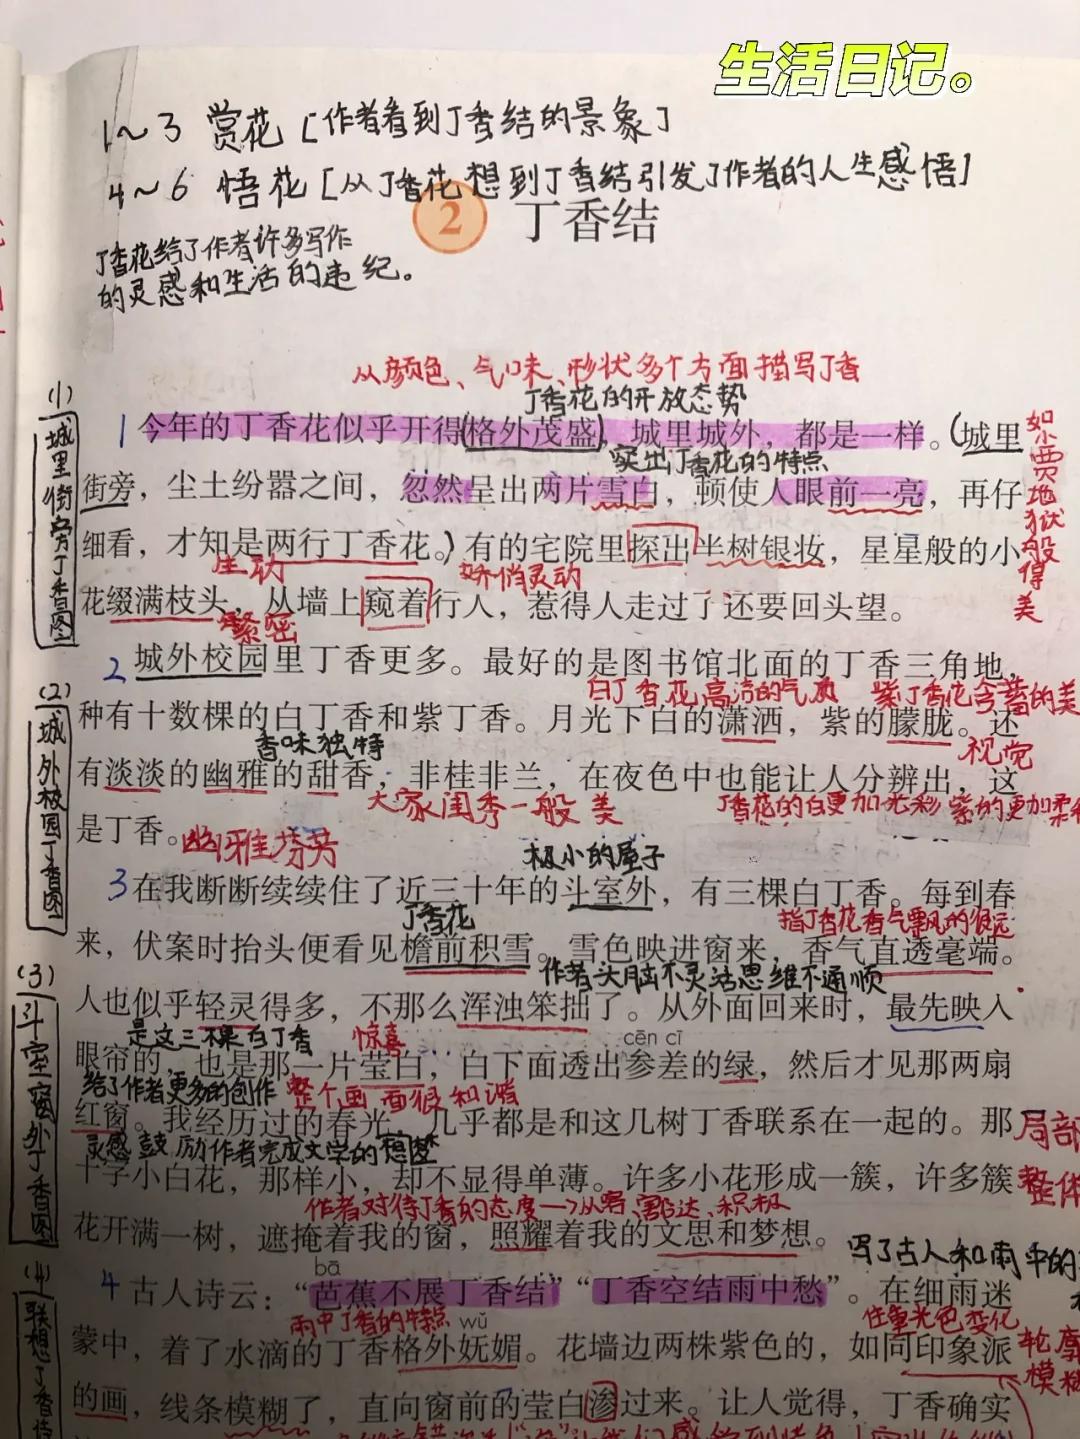 生活日记。
1~3 赏花[作者看到丁香结的景象]
4~6 悟花[从丁香花想到丁香结引发了作者的人生感悟]
2 丁香结
丁香花给了作者许多写作
的灵感和生活的违纪。
从颜色、气味、形状多个方面描写丁香
丁香花的开放态势
(1)
城里街旁丁香图
1 今年的丁香花似乎开得(格外茂盛),城里城外,都是一样。(城里
突出丁香花的特点
街旁,尘土纷嚣之间,忽然呈出两片雪白,顿使人眼前一亮,再仔
细看,才知是两行丁香花。)有的宅院里探出半树银妆,星星般的小
生动
娇俏灵动
花缀满枝头,从墙上窥着行人,惹得人走过了还要回头望。
繁密
如小贾地狱般得美
(2)
城外校园丁香图
2 城外校园里丁香更多。最好的是图书馆北面的丁香三角地,
白丁香花高洁的气质 紫丁香花含蓄的美
种有十数棵的白丁香和紫丁香。月光下白的潇洒,紫的朦胧。还
香味独特
视觉
有淡淡的幽雅的甜香,非桂非兰,在夜色中也能让人分辨出,这
大家闺秀一般美
丁香花的白更加光彩 紫的更加柔和
是丁香。
幽雅芬芳
极小的屋子
3 在我断断续续住了近三十年的斗室外,有三棵白丁香。每到春
丁香花
指丁香花香气飘的很远
来,伏案时抬头便看见檐前积雪。雪色映进窗来,香气直透毫端。
(3)
斗室窗外丁香图
作者头脑不灵活思维不通顺
人也似乎轻灵得多,不那么浑浊笨拙了。从外面回来时,最先映入
是这三棵白丁香
惊喜
cēn cī
眼帘的,也是那一片莹白,白下面透出参差的绿,然后才见那两扇
给了作者更多的创作
整个画面很和谐
红窗。我经历过的春光,几乎都是和这几树丁香联系在一起的。那
局部
灵感鼓励作者完成文学的想梦
十字小白花,那样小,却不显得单薄。许多小花形成一簇,许多簇
整体
作者对待丁香的态度→从容、豁达、积极
花开满一树,遮掩着我的窗,照耀着我的文思和梦想。
写了古人和雨中的
(4)
联想丁香诗
bā
4 古人诗云:“芭蕉不展丁香结”“丁香空结雨中愁”。在细雨迷
雨中丁香的特点
wǔ
住重光色变化
蒙中,着了水滴的丁香格外妩媚。花墙边两株紫色的,如同印象派
轮廓
模糊
的画,线条模糊了,直向窗前的莹白渗过来。让人觉得,丁香确实